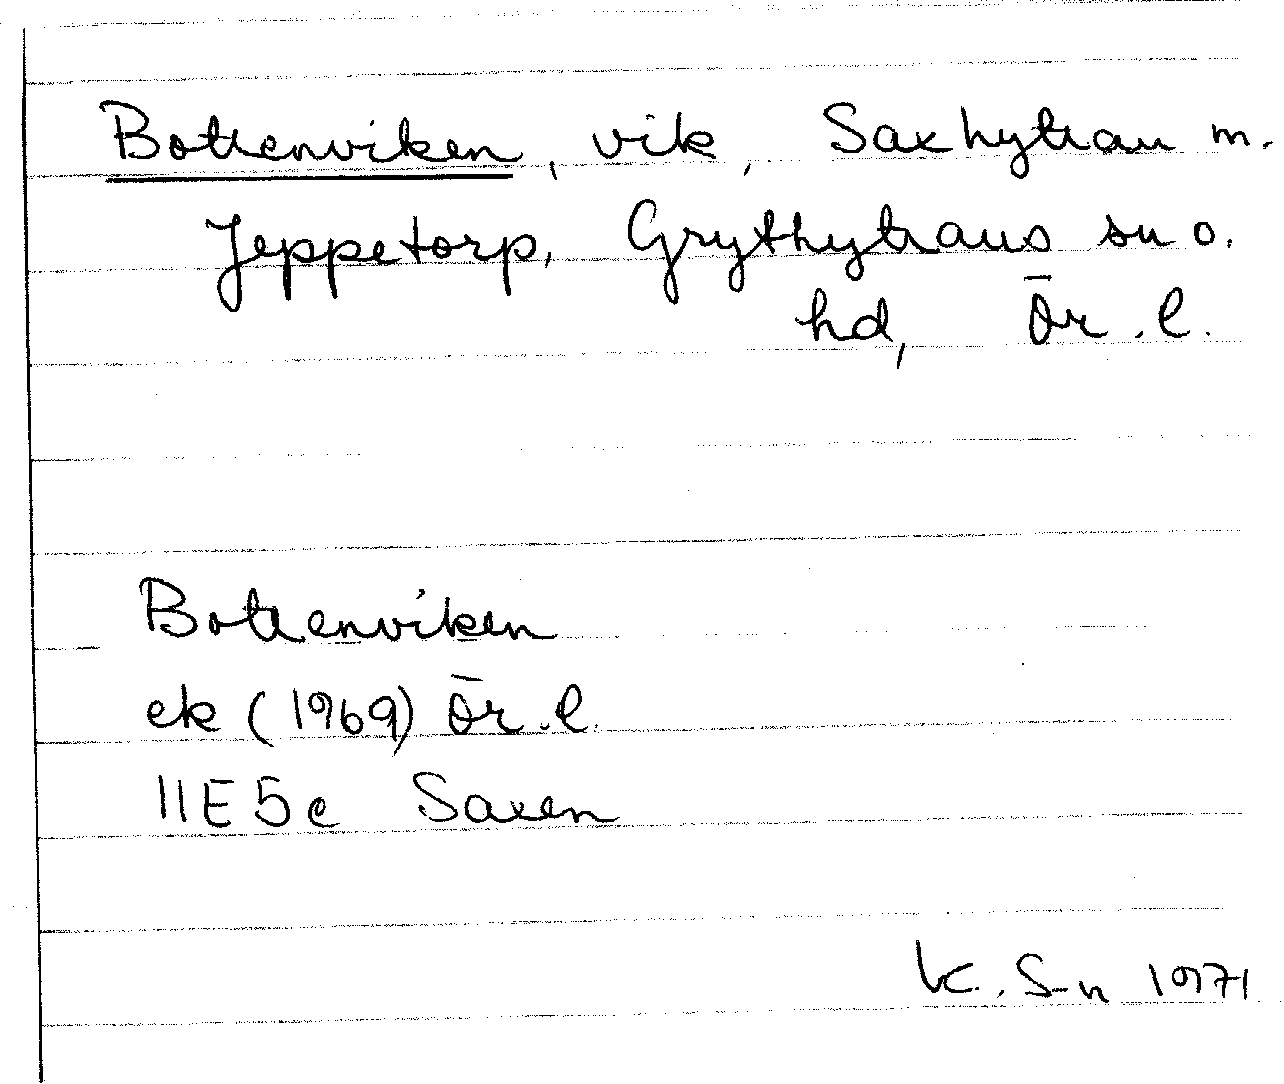 Bottenviken, vik, Saxhyttan m.
Jeppetorp, Grythyttans sn o.
hd, Ör. l.
Bottenviken
ek (1969) Ör. l.
11E5e Saxen
K. S-n 1971